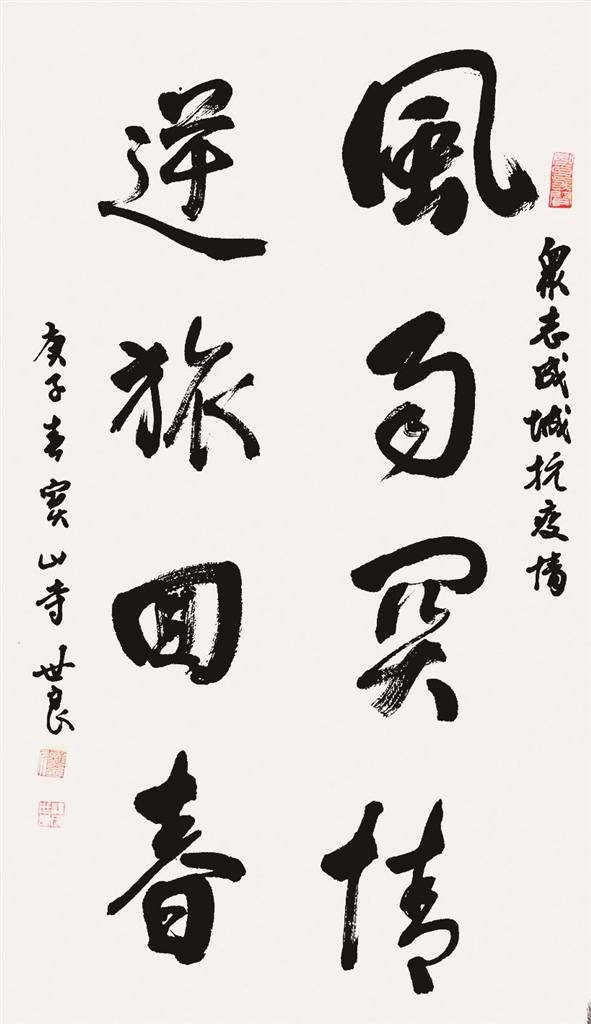 衆志成城抗疫情
風雨関情
逆旅回春
庚子春寶山寺 世良